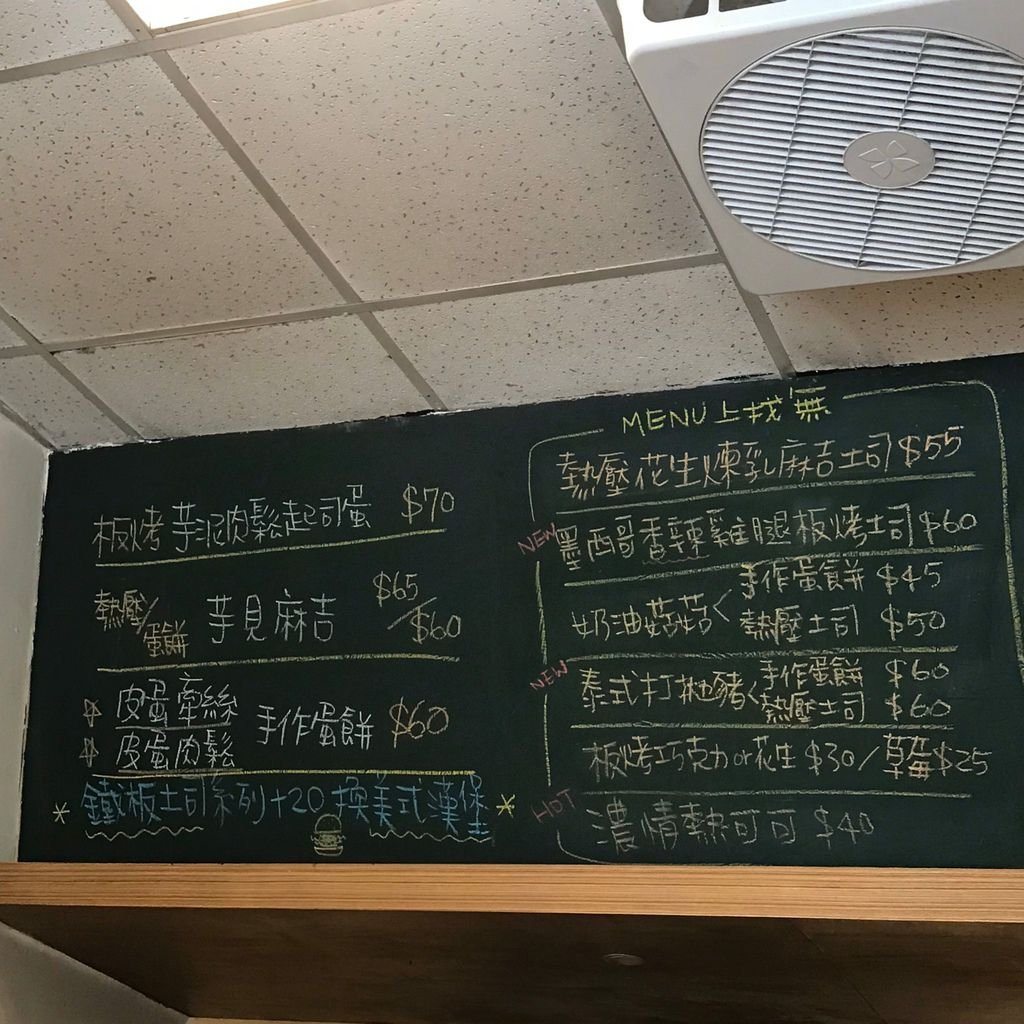 板烤芋泥肉鬆起司蛋 $70
熱壓/蛋餅 芋見麻吉 $65/$60
皮蛋牽絲
皮蛋肉鬆
手作蛋餅 $60
鐵板土司系列+20換美式漢堡
MENU上找無
熱壓花生煉乳麻吉土司 $55
NEW 墨西哥香辣雞腿板烤土司 $60
奶油菇菇
手作蛋餅 $45
熱壓土司 $50
NEW 泰式打拋豬
手作蛋餅 $60
熱壓土司 $60
板烤巧克力or花生 $30/草莓$25
HOT 濃情熱可可 $40